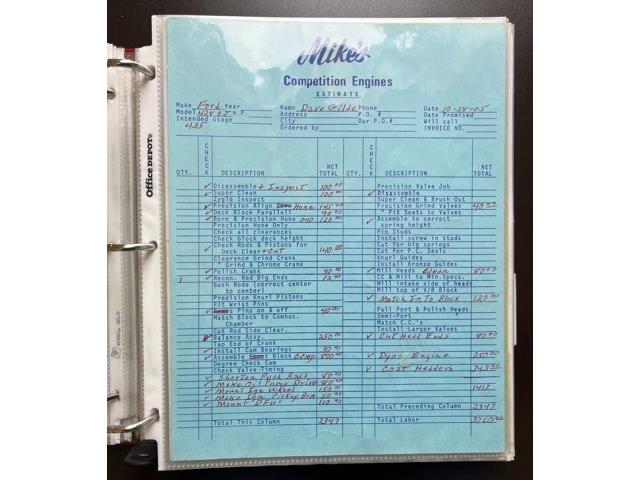 Mike's
Competition Engines
ESTIMATE
Make Ford Year
Name Dave Phone
Date 10-28-05
Model 428 CJ H.P.
Address P.O. #
Date Promised
Intended Usage
City Our P.O.#
Will call
Ordered by
INVOICE NO.
Office DEPOT
QTY. CHECK DESCRIPTION NET TOTAL
QTY. CHECK DESCRIPTION NET TOTAL
Disassemble + Inspect 100 00
Super Clean 100 00
Zyglo Inspect
Precision Align Hone 145 00
Deck Block Parallell
Bore & Precision Hone 120 00
Precision Hone Only
Check all clearances
Check block deck height
Check Rods & Pistons for
Deck Clear + cut 140 00
Clearance Grind Crank
Grind & Chrome Crank
Polish Crank 40 00
1 Recon. Rod Big Ends
Bush Rods (correct center
to center)
Precision Knurl Pistons
Fit Wrist Pins
Pins on & off 40 00
Match Block to Combus.
Chamber
Cut Rod Side Clear.
Balance Assy. 250 00
Tap End of Crank
Install Cam Bearings 30 00
Assemble Block Comp 800 00
Degree Check Cam
Check Valve Timing
Shorten Push Rods 80 00
Make Oil Pump Drive 80 00
Mount Ign Wheel 150 00
Make Ign Pickup Brk
Mount DFU 110 00
Total This Column 2347
Precision Valve Job
Disassemble
Super Clean & Brush Out
Precision Grind Valves
" Fit Seats to Valves
Assemble to correct
spring height
Pin Studs
Install screw in studs
Cut for big springs
Cut for P.C. Seals
Knurl Guides
Install Bronze Guides
Mill Heads Clean 80 00
CC & Mill to Min.Specs.
Mill intake side of heads
Mill top of V/8 Block
Match Int To Block 120 00
Full Port & Polish Heads
Semi-Port "
Match C.C.'s
Install Larger Valves
Cut Head Ends 80 00
Dyno Engine 250 00
Coat Headers
1413
Total Preceding Column 2347
Total Labor 3760 00